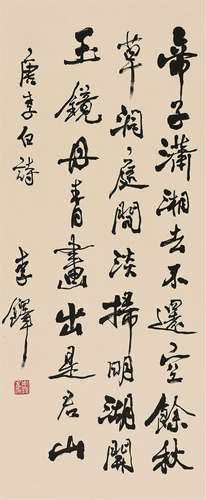 帝子瀟湘去不還空餘秋
草洞庭間淡掃明湖開
玉鏡丹青畫出是君山
唐李白詩 李鐸